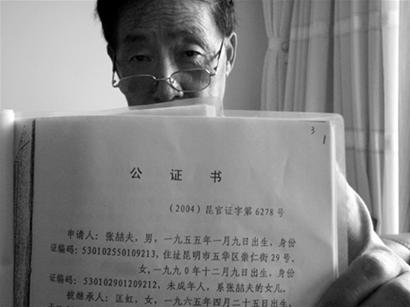 3 1
公 证 书
(2004)昆官证字第6278号
申请人：张喆夫，男，一九五五年一月九日出生，身份
证编码：530102550109213，住址昆明市五华区崇仁街29号。
女，一九九0年十二月九日出生，身份
证编码：530102901209212，未成年人，系张喆夫的女儿。
被继承人：匡虹，女，一九六五年四月二十五日出生，